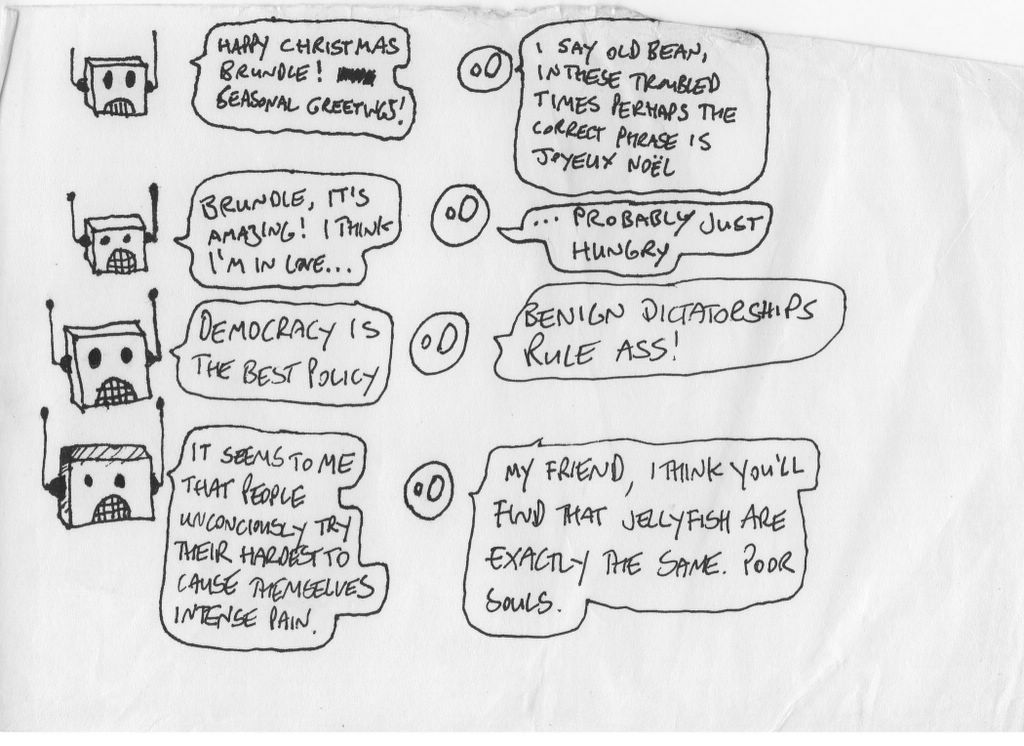 HAPPY CHRISTMAS
BRUNDLE!
SEASONAL GREETINGS!
I SAY OLD BEAN,
IN THESE TROUBLED
TIMES PERHAPS THE
CORRECT PHRASE IS
JOYEUX NOËL
BRUNDLE, IT'S
AMAZING! I THINK
I'M IN LOVE...
... PROBABLY JUST
HUNGRY
DEMOCRACY IS
THE BEST POLICY
BENIGN DICTATORSHIPS
RULE ASS!
IT SEEMS TO ME
THAT PEOPLE
UNCONCIOUSLY TRY
THEIR HARDEST TO
CAUSE THEMSELVES
INTENSE PAIN.
MY FRIEND, I THINK YOU'LL
FIND THAT JELLYFISH ARE
EXACTLY THE SAME. POOR
SOULS.